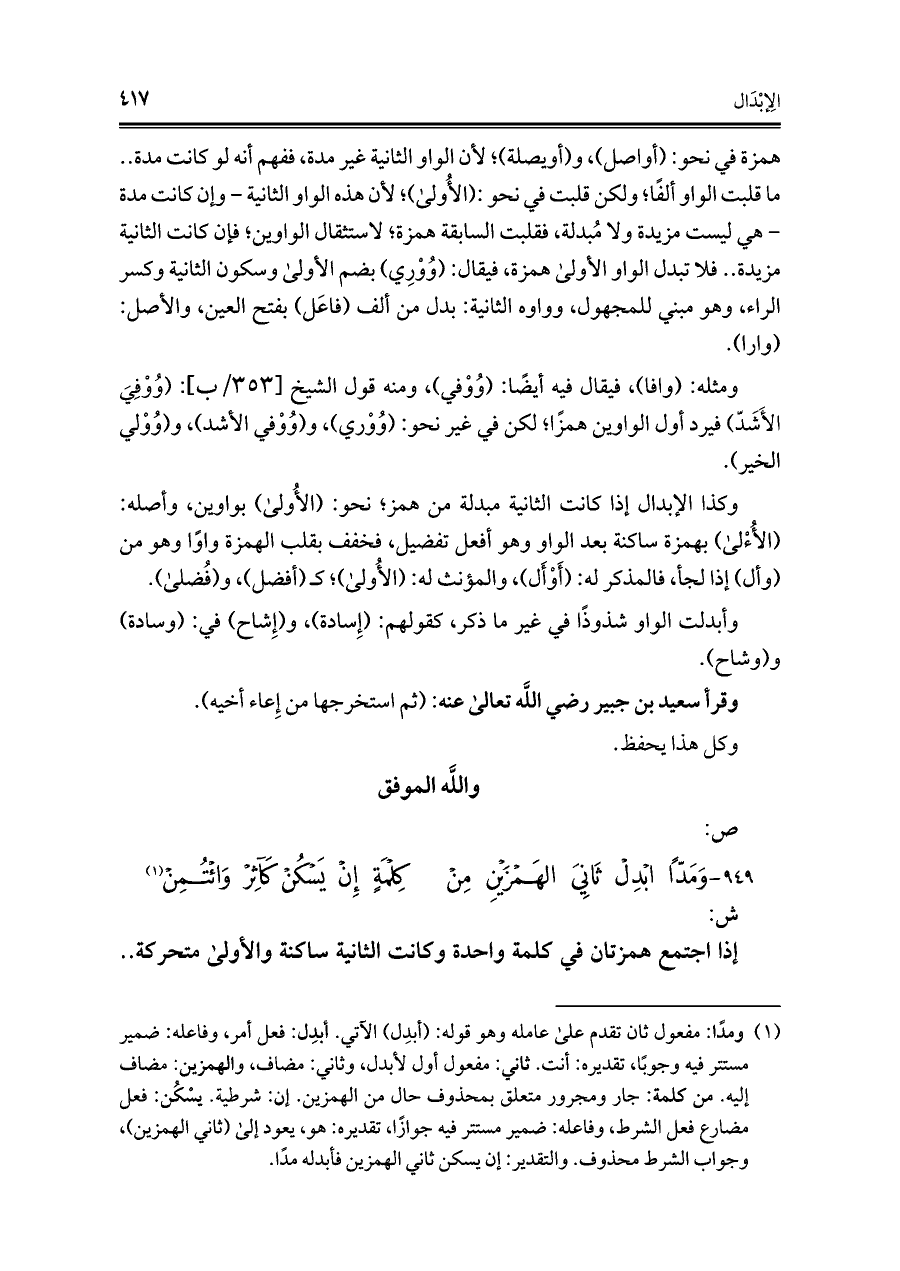 الإِبْدَال ٤١٧
همزة في نحو: (أواصل)، و(أويصلة)؛ لأن الواو الثانية غير مدة، ففهم أنه لو كانت مدة..
ما قلبت الواو ألفًا؛ ولكن قلبت في نحو :(الأُولىٰ)؛ لأن هذه الواو الثانية – وإن كانت مدة
– هي ليست مزيدة ولا مُبدلة، فقلبت السابقة همزة؛ لاستثقال الواوين؛ فإن كانت الثانية
مزيدة.. فلا تبدل الواو الأولىٰ همزة، فيقال: (وُوْرِي) بضم الأولىٰ وسكون الثانية وكسر
الراء، وهو مبني للمجهول، وواوه الثانية: بدل من ألف (فاعَل) بفتح العين، والأصل:
(وارا).
ومثله: (وافا)، فيقال فيه أيضًا: (وُوْفي)، ومنه قول الشيخ [٣٥٣/ ب]: (وُوْفِيَ
الأَشَدّ) فيرد أول الواوين همزًا؛ لكن في غير نحو: (وُوْري)، و(وُوْفي الأشد)، و(وُوْلي
الخير).
وكذا الإبدال إذا كانت الثانية مبدلة من همز؛ نحو: (الأُولىٰ) بواوين، وأصله:
(الأُءْلىٰ) بهمزة ساكنة بعد الواو وهو أفعل تفضيل، فخفف بقلب الهمزة واوًا وهو من
(وأل) إذا لجأ، فالمذكر له: (أَوْأَل)، والمؤنث له: (الأُولىٰ)؛ كـ (أفضل)، و(فُضلىٰ).
وأبدلت الواو شذوذًا في غير ما ذكر، كقولهم: (إِسادة)، و(إِشاح) في: (وسادة)
و(وشاح).
وقرأ سعيد بن جبير رضي اللَّه تعالىٰ عنه: (ثم استخرجها من إِعاء أخيه).
وكل هذا يحفظ.
واللَّه الموفق
ص:
٩٤٩-وَمَدًّا ابْدِلْ ثَانِيَ الهَـمْزَيْنِ مِنْ كِلْمَةٍ إِنْ يَسْكُنْ كَآثِرْ وَائْتُـمِنْ(١)
ش:
إذا اجتمع همزتان في كلمة واحدة وكانت الثانية ساكنة والأولىٰ متحركة..
(١) ومدًا: مفعول ثان تقدم علىٰ عامله وهو قوله: (أبدِل) الآتي. أبدِل: فعل أمر، وفاعله: ضمير
مستتر فيه وجوبًا، تقديره: أنت. ثاني: مفعول أول لأبدل، وثاني: مضاف، والهمزين: مضاف
إليه. من كلمة: جار ومجرور متعلق بمحذوف حال من الهمزين. إن: شرطية. يسْكُن: فعل
مضارع فعل الشرط، وفاعله: ضمير مستتر فيه جوازًا، تقديره: هو، يعود إلىٰ (ثاني الهمزين)،
وجواب الشرط محذوف. والتقدير: إن يسكن ثاني الهمزين فأبدله مدًا.